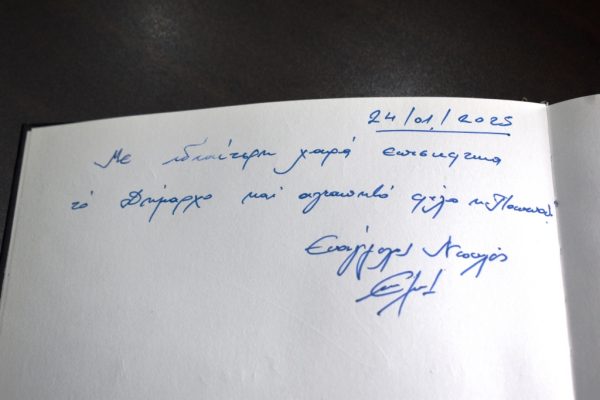 24/01/2025
Με ιδιαίτερη χαρά επισκέφτηκα
τό Δήμαρχο καί αγαπητό φίλο κ.
Ευάγγελος Ντουλός